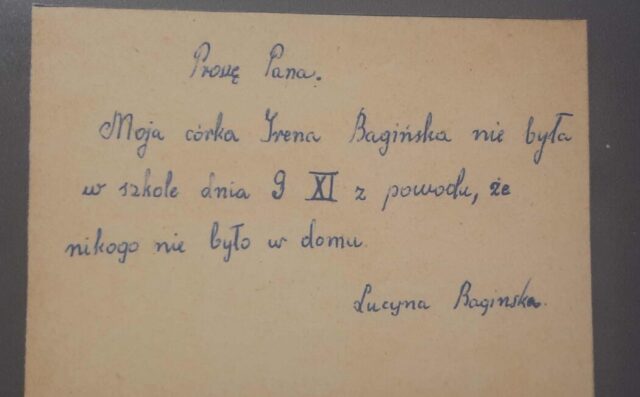 Proszę Pana.
Moja córka Irena Bagińska nie była
w szkole dnia 9 XI z powodu, że
nikogo nie było w domu
Lucyna Baginska.